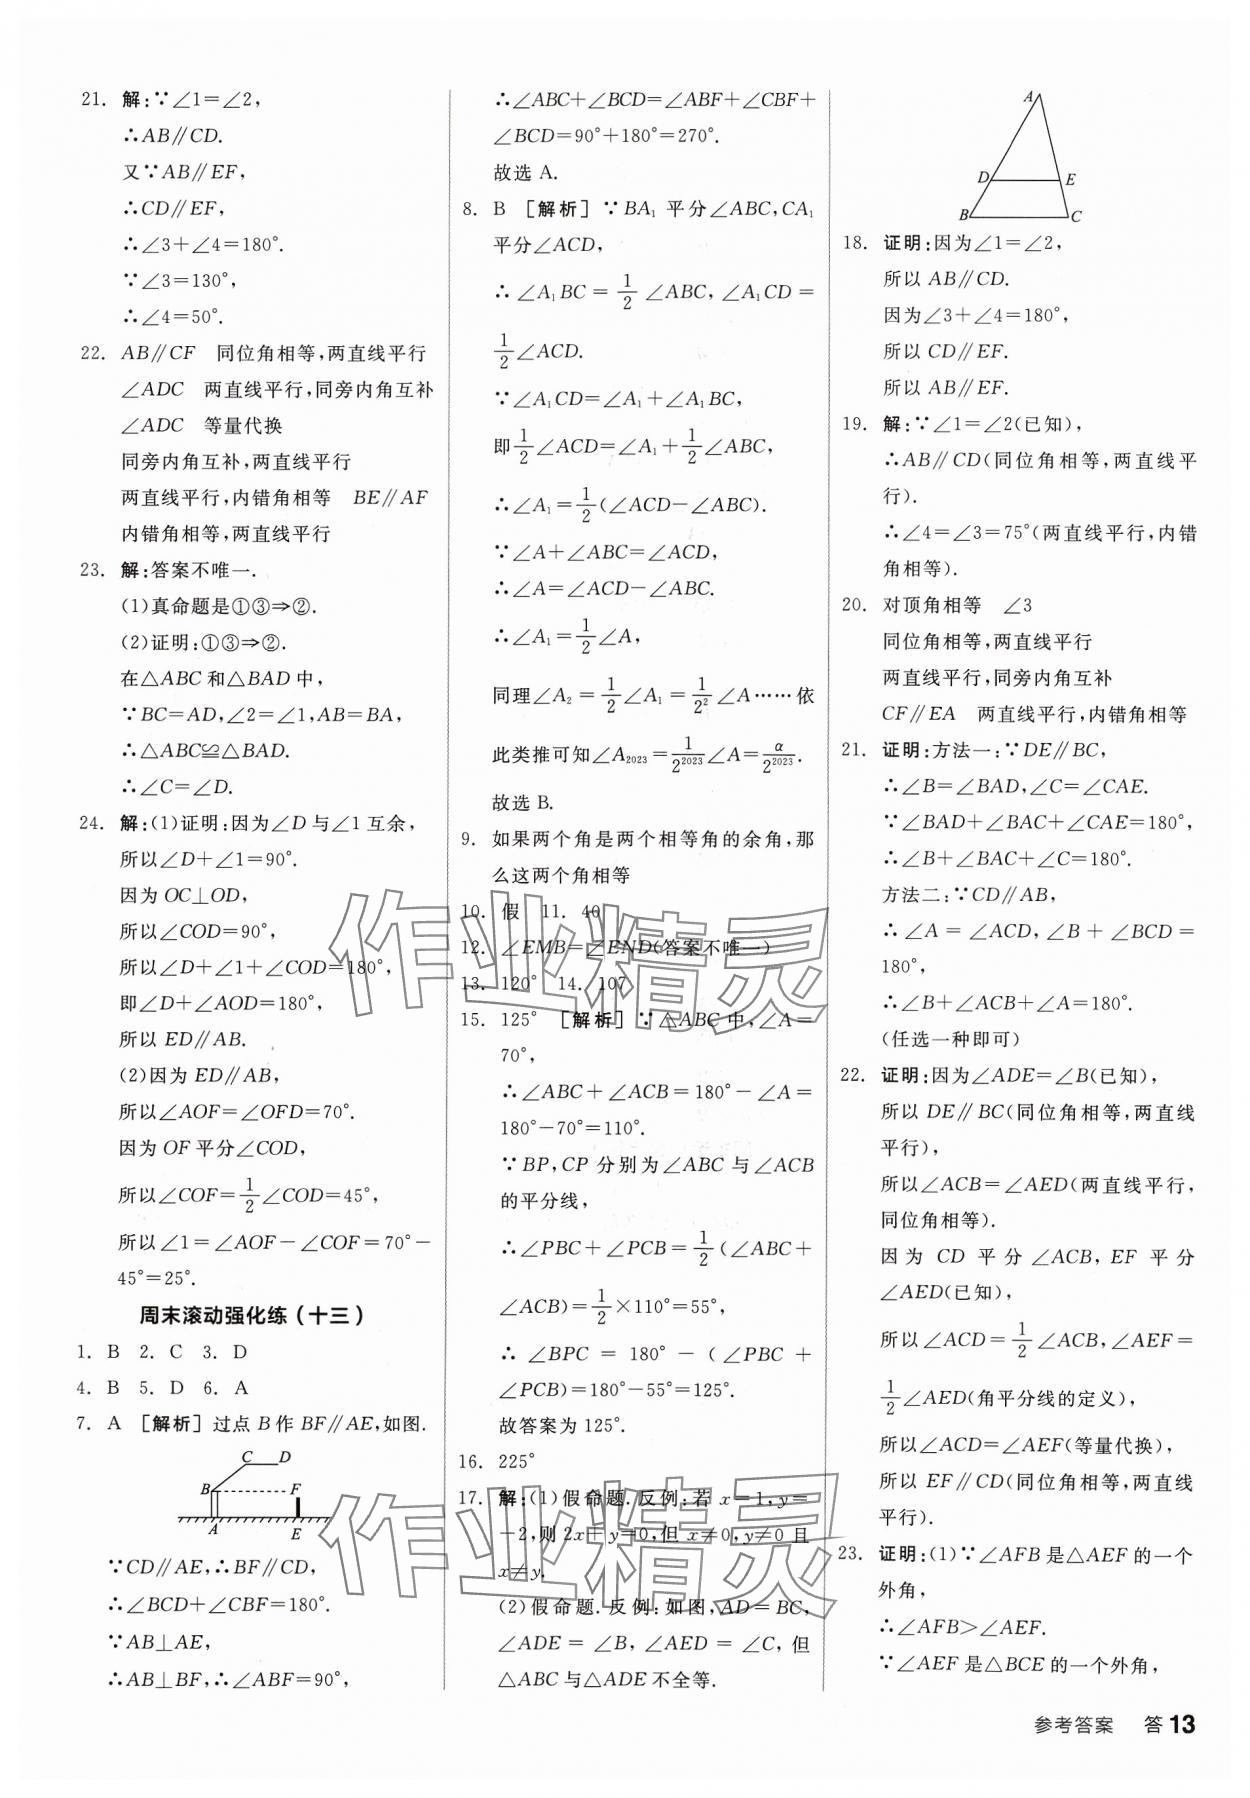 21. 解:∵∠1=∠2,
∴AB∥CD.
又∵AB∥EF,
∴CD∥EF,
∴∠3+∠4=180°.
∵∠3=130°,
∴∠4=50°.
22. AB∥CF 同位角相等,两直线平行
∠ADC 两直线平行,同旁内角互补
∠ADC 等量代换
同旁内角互补,两直线平行
两直线平行,内错角相等 BE∥AF
内错角相等,两直线平行
23. 解:答案不唯一.
(1)真命题是①③⇒②.
(2)证明:①③⇒②.
在△ABC和△BAD中,
∵BC=AD,∠2=∠1,AB=BA,
∴△ABC≌△BAD.
∴∠C=∠D.
24. 解:(1)证明:因为∠D与∠1互余,
所以∠D+∠1=90°.
因为OC⊥OD,
所以∠COD=90°,
所以∠D+∠1+∠COD=180°,
即∠D+∠AOD=180°,
所以ED∥AB.
(2)因为ED∥AB,
所以∠AOF=∠OFD=70°.
因为OF平分∠COD,
所以∠COF=1/2∠COD=45°,
所以∠1=∠AOF-∠COF=70°-
45°=25°.
周末滚动强化练(十三)
1. B 2. C 3. D
4. B 5. D 6. A
7. A [解析]过点B作BF∥AE,如图.
C D
B F
A E
∵CD∥AE,∴BF∥CD,
∴∠BCD+∠CBF=180°.
∵AB⊥AE,
∴AB⊥BF,∴∠ABF=90°,
∴∠ABC+∠BCD=∠ABF+∠CBF+
∠BCD=90°+180°=270°.
故选A.
8. B [解析]∵BA₁平分∠ABC,CA₁
平分∠ACD,
∴∠A₁BC=1/2∠ABC,∠A₁CD=
1/2∠ACD.
∵∠A₁CD=∠A₁+∠A₁BC,
即1/2∠ACD=∠A₁+1/2∠ABC,
∴∠A₁=1/2(∠ACD-∠ABC).
∵∠A+∠ABC=∠ACD,
∴∠A=∠ACD-∠ABC.
∴∠A₁=1/2∠A,
同理∠A₂=1/2∠A₁=1/2²∠A……依
此类推可知∠A₂₀₂₃=1/2²⁰²³∠A=α/2²⁰²³.
故选B.
9. 如果两个角是两个相等角的余角,那
么这两个角相等
10. 假 11. 40
12. ∠EMB=∠END(答案不唯一)
13. 120° 14. 107
15. 125° [解析]∵△ABC中,∠A=
70°,
∴∠ABC+∠ACB=180°-∠A=
180°-70°=110°.
∵BP,CP分别为∠ABC与∠ACB
的平分线,
∴∠PBC+∠PCB=1/2(∠ABC+
∠ACB)=1/2×110°=55°,
∴∠BPC=180°-(∠PBC+
∠PCB)=180°-55°=125°.
故答案为125°.
16. 225°
17. 解:(1)假命题.反例:若x=1,y=
-2,则2x+y=0,但x≠0,y≠0且
x≠y.
(2)假命题.反例:如图,AD=BC,
∠ADE=∠B,∠AED=∠C,但
△ABC与△ADE不全等.
A
D E
B C
18. 证明:因为∠1=∠2,
所以AB∥CD.
因为∠3+∠4=180°,
所以CD∥EF.
所以AB∥EF.
19. 解:∵∠1=∠2(已知),
∴AB∥CD(同位角相等,两直线平
行).
∴∠4=∠3=75°(两直线平行,内错
角相等).
20. 对顶角相等 ∠3
同位角相等,两直线平行
两直线平行,同旁内角互补
CF∥EA 两直线平行,内错角相等
21. 证明:方法一:∵DE∥BC,
∴∠B=∠BAD,∠C=∠CAE.
∵∠BAD+∠BAC+∠CAE=180°,
∴∠B+∠BAC+∠C=180°.
方法二:∵CD∥AB,
∴∠A=∠ACD,∠B+∠BCD=
180°,
∴∠B+∠ACB+∠A=180°.
(任选一种即可)
22. 证明:因为∠ADE=∠B(已知),
所以DE∥BC(同位角相等,两直线
平行),
所以∠ACB=∠AED(两直线平行,
同位角相等).
因为CD平分∠ACB,EF平分
∠AED(已知),
所以∠ACD=1/2∠ACB,∠AEF=
1/2∠AED(角平分线的定义),
所以∠ACD=∠AEF(等量代换),
所以EF∥CD(同位角相等,两直线
平行).
23. 证明:(1)∵∠AFB是△AEF的一个
外角,
∴∠AFB>∠AEF.
∵∠AEF是△BCE的一个外角,
参考答案 答13
作业精灵
作业精灵